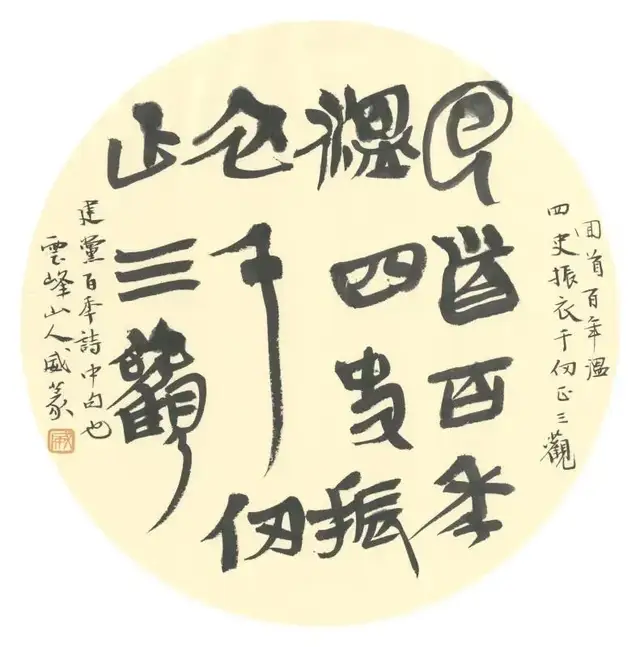 回首百年
溫四史振
衣千仞
正三觀
回首百年溫
四史振衣千仞正三觀
建黨百年詩中句也
雲峰山人威篆